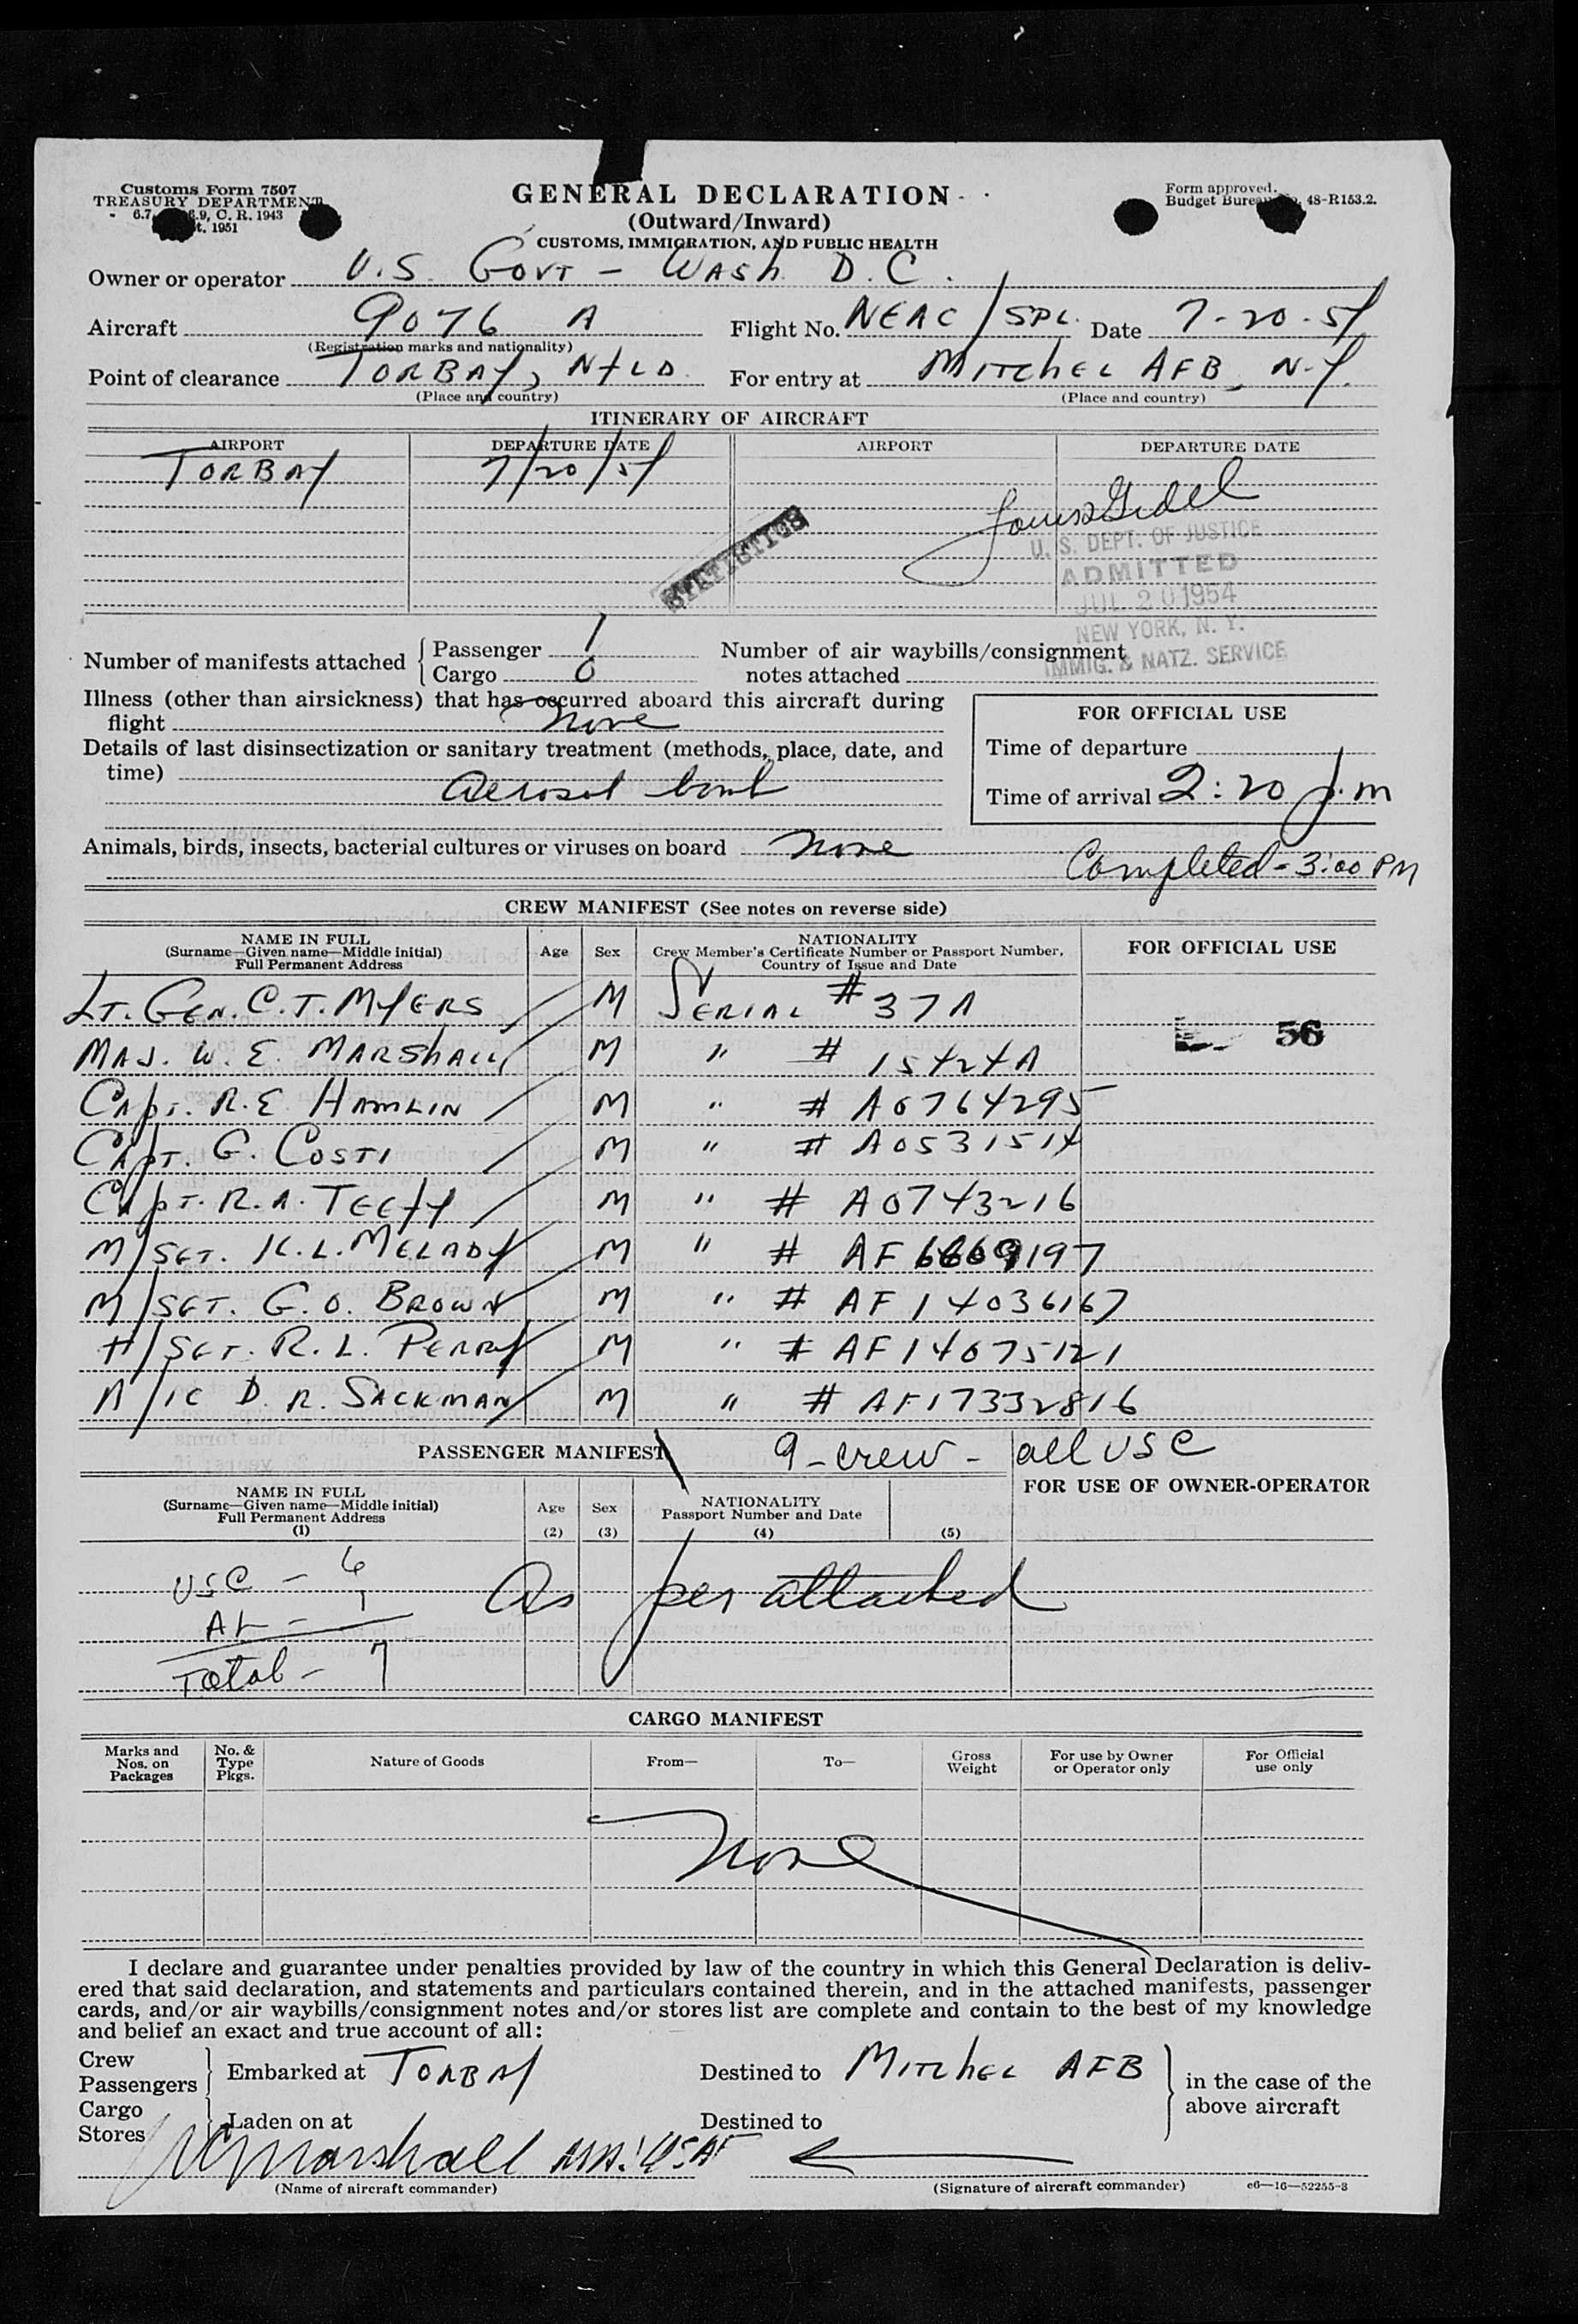 Customs Form 7507
TREASURY DEPARTMENT
6.9, C. R. 1943
1951
GENERAL DECLARATION
(Outward/Inward)
CUSTOMS, IMMIGRATION, AND PUBLIC HEALTH
Form approved.
Budget Bureau No. 48-R153.2.
Owner or operator U.S. GOVT - WASH D.C.
Aircraft 9076 A Flight No. NEAC/SPL. Date 7-20-54
(Registration marks and nationality)
Point of clearance TORBAY, NFLD For entry at MITCHEL AFB, N.Y.
(Place and country) (Place and country)
ITINERARY OF AIRCRAFT
AIRPORT DEPARTURE DATE AIRPORT DEPARTURE DATE
TORBAY 7/20/54
STATISTICS
U. S. DEPT. OF JUSTICE
ADMITTED
JUL 20 1954
NEW YORK, N. Y.
IMMIG. & NATZ. SERVICE
Number of manifests attached Passenger 1
Cargo 0
Number of air waybills/consignment
notes attached
Illness (other than airsickness) that has occurred aboard this aircraft during
flight None
Details of last disinsectization or sanitary treatment (methods, place, date, and
time) Aerosol bomb
FOR OFFICIAL USE
Time of departure
Time of arrival 2:20 p.m
Animals, birds, insects, bacterial cultures or viruses on board None
Completed - 3:00 PM
CREW MANIFEST (See notes on reverse side)
NAME IN FULL
(Surname—Given name—Middle initial)
Full Permanent Address
Age Sex
NATIONALITY
Crew Member's Certificate Number or Passport Number,
Country of Issue and Date
FOR OFFICIAL USE
LT. GEN. C.T. MYERS M SERIAL # 37A
56
MAJ. W. E. MARSHALL M " # 15424A
CAPT. R.E HAMLIN M " # AO764295
CAPT. G. COSTI M " # AO531514
CAPT. R.A. TEEFY M " # AO743216
M/SGT. K.L. MELADY M " # AF 6669197
M/SGT. G.O. BROWN M " # AF 14036167
T/SGT. R.L. PERRY M " # AF 14075121
A/1C D. R. SACKMAN M " # AF17332816
PASSENGER MANIFEST 9 - crew - all USC
NAME IN FULL
(Surname—Given name—Middle initial)
Full Permanent Address
(1)
Age
(2)
Sex
(3)
NATIONALITY
Passport Number and Date
(4) (5)
FOR USE OF OWNER-OPERATOR
USC - 6
AL - 1
Total - 7
As per attached
CARGO MANIFEST
Marks and
Nos. on
Packages
No. &
Type
Pkgs.
Nature of Goods From— To—
Gross
Weight
For use by Owner
or Operator only
For Official
use only
None
I declare and guarantee under penalties provided by law of the country in which this General Declaration is deliv-
ered that said declaration, and statements and particulars contained therein, and in the attached manifests, passenger
cards, and/or air waybills/consignment notes and/or stores list are complete and contain to the best of my knowledge
and belief an exact and true account of all:
Crew
Passengers Embarked at TORBAY Destined to MITCHEL AFB
in the case of the
above aircraft
Cargo
Stores Laden on at Destined to
WE Marshall MAJ USAF
(Name of aircraft commander) (Signature of aircraft commander) c6—16—52255-3